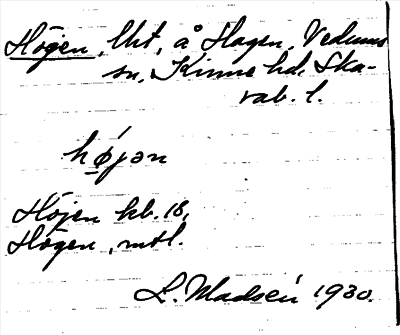 Högen, lht, å Hagen, Vedums
sn, Kinne hd, Ska-
rab. l.
hǿjən
Höjen kb. 18,
Högen, mtl.
L. Madsén 1930.